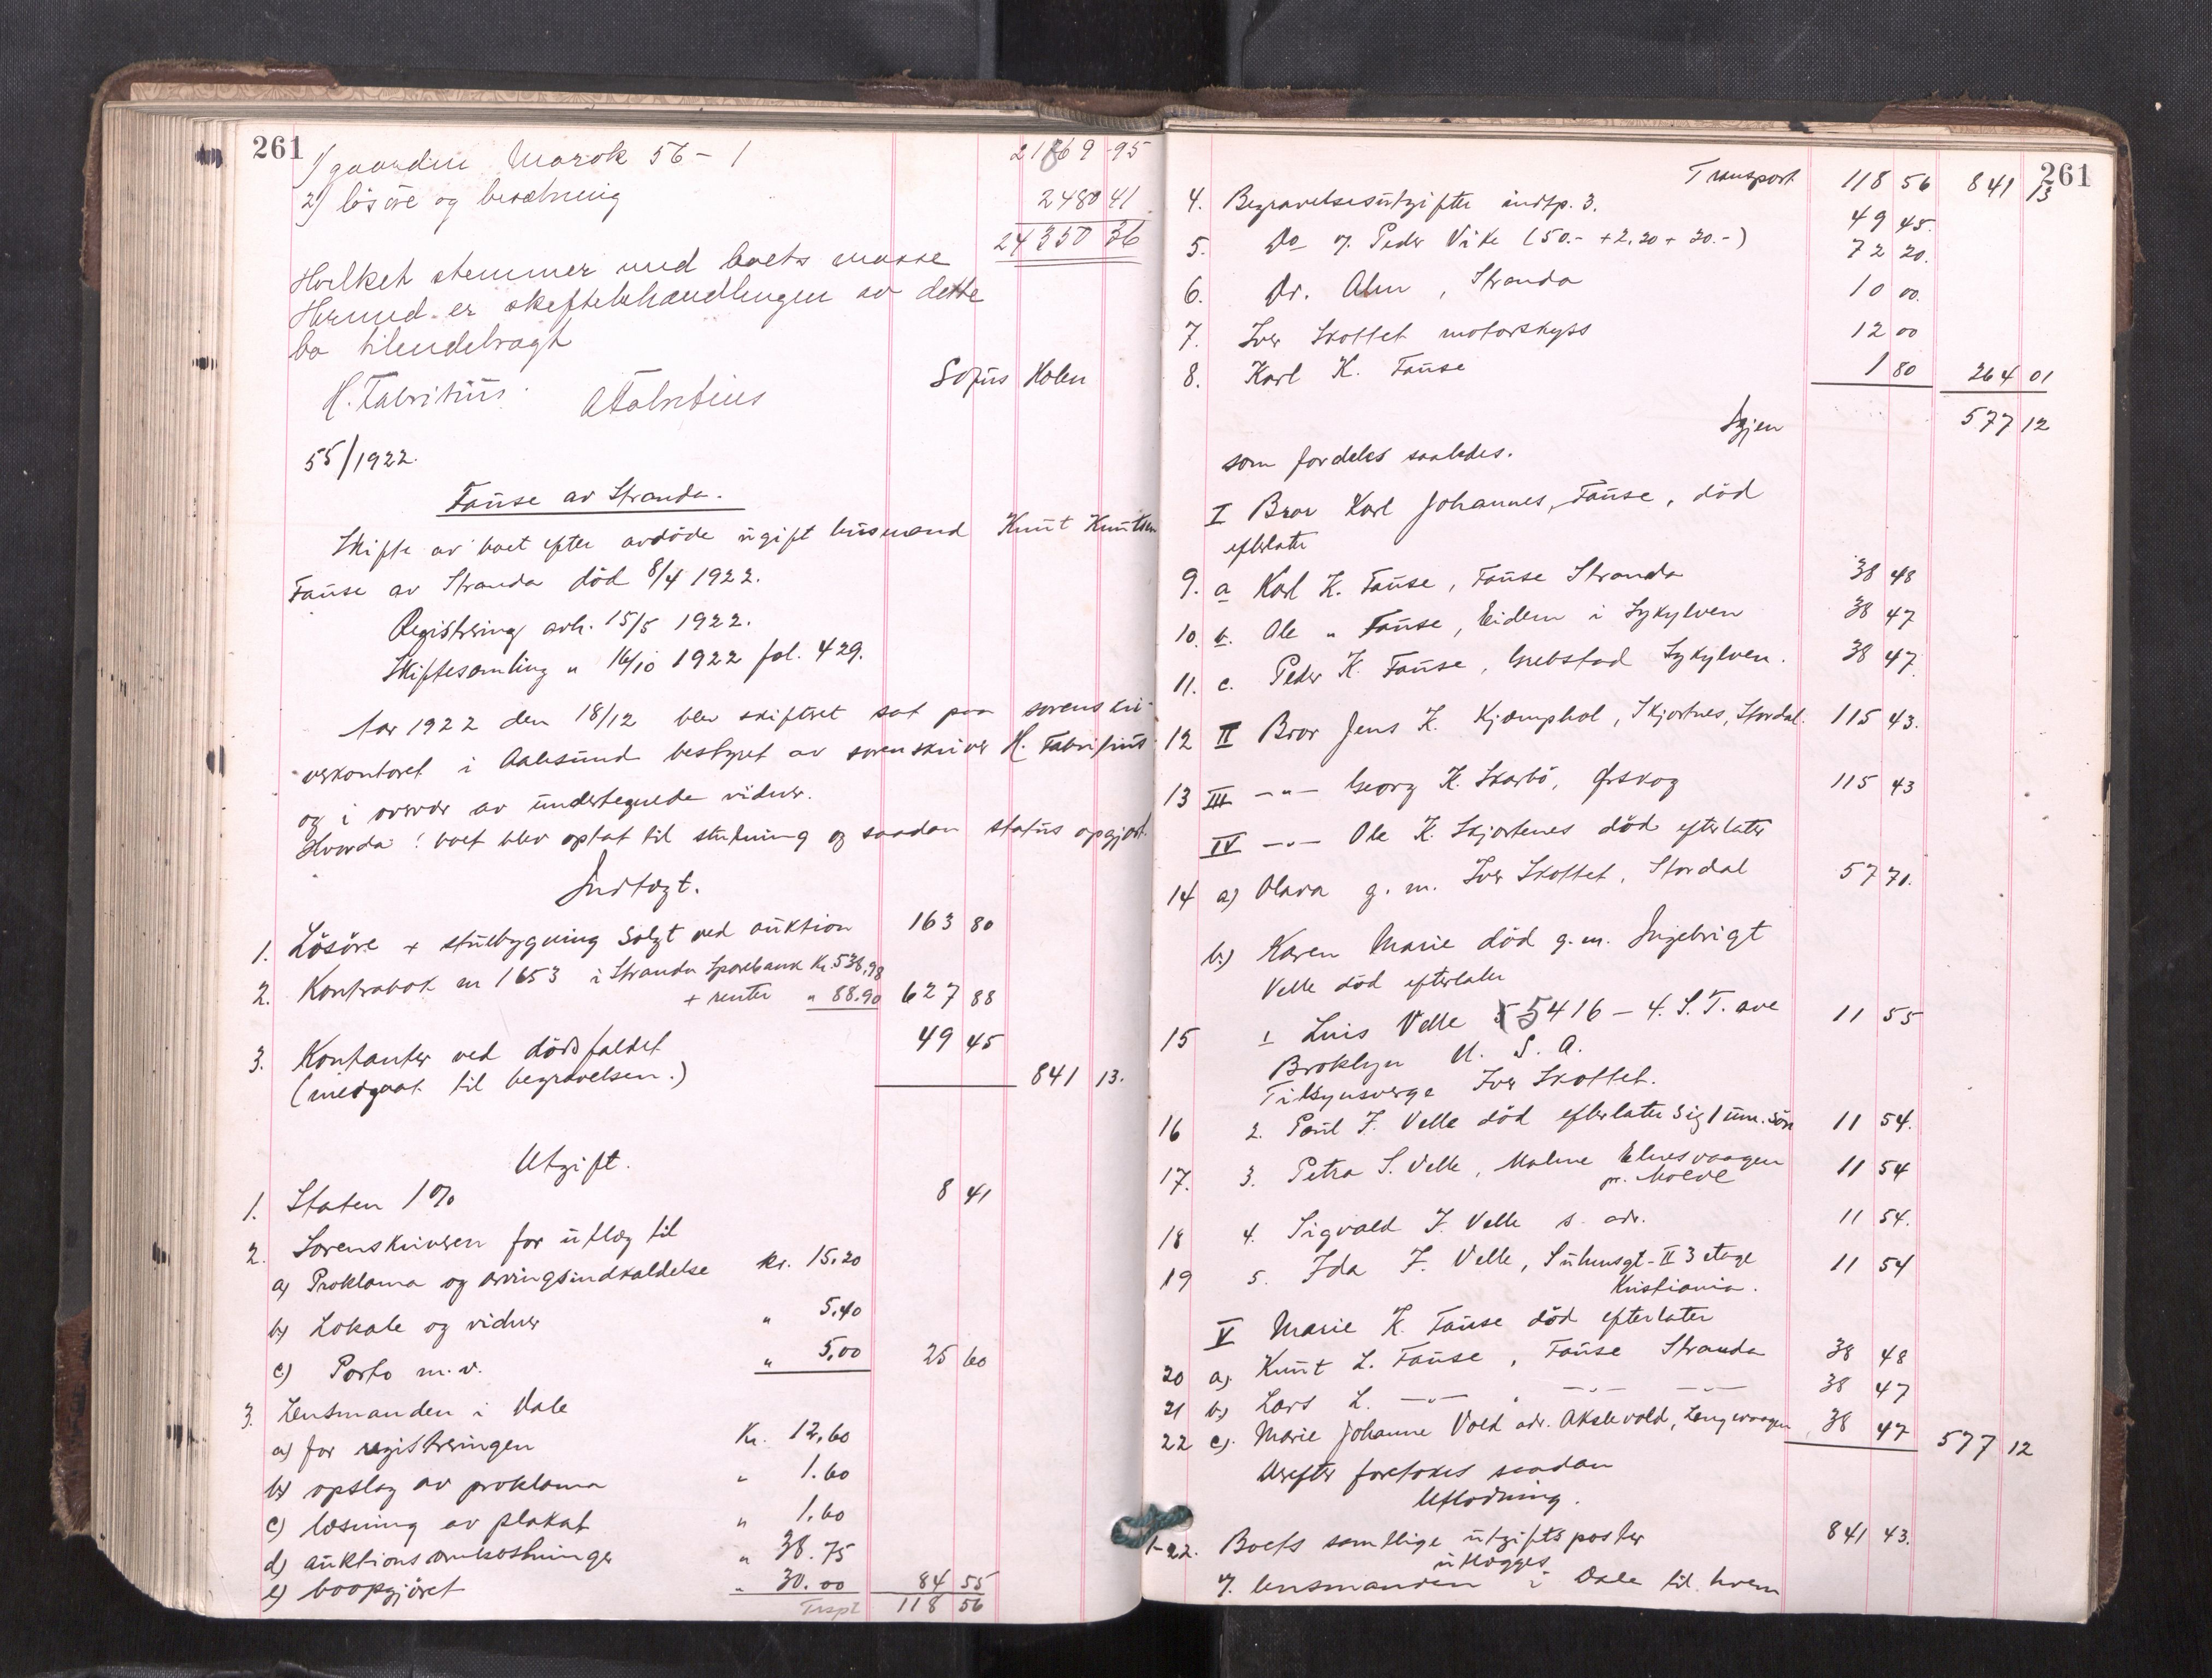 261
1) gaarden Marok 56 - 1 21869 95
2) løsøre og besætning 2480 41
24350 36
Hvilket stemmer med boets masse
Hermed er skiftebehandlingen av dette
bo tilendebragt
H. Fabritius. AFabritius Sofus Holen
55/1922.
Fause av Stranda.
Skifte av boet efter avdøde ugift husmand Knut Knutsen
Fause av Stranda død 8/4 1922.
Registrering avh. 15/5 1922.
Skiftesamling " 16/10 1922 fol. 429.
Aar 1922 den 18/12 blev skifteret sat paa sorenskri-
verkontoret i Aalesund bestyret av sorenskriver H. Fabritius
og i overvær av undertegnede vidner.
Hvorda: boet blev optat til slutning og saadan status opgjort.
Indtægt.
1. Løsøre + stuebygning solgt ved auktion 163 80
2. Kontrabok nr 1653 i Stranda Sparebank Kr. 538,98
+ renter " 88.90 627 88
3. Kontanter ved dødsfaldet 49 45
(medgaat til begravelsen.) 841 13.
Utgift.
1. Staten 1% 8 41
2. Sorenskriveren for utlæg til
a) Proklama og arvingsindkaldelse kr. 15.20
b) Lokale og vidner " 5.40
c) Porto m.v. " 5,00 25 60
3. Lensmanden i Dale
a) for registreringen Kr. 12,60
b) opslag av proklama " 1.60
c) læsning av plakat " 1,60
d) auktionsomkostninger " 38.75
e) boopgjøret " 30.00 84 55
Trspt 118 56
261
Transport 118 56 841 13
4. Begravelsesutgifter indtp. 3. 49 45.
5. Do v. Peder Vike (50.- + 2.20 + 20.-) 72 20.
6. Dr. Alm, Stranda 10 00.
7. Iver Skottet motorskyss 12 00
8. Karl K. Fause 1 80 264 01
Igjen 577 12
som fordeles saaledes.
I Bror Karl Johannes, Fause, død
efterlater
9. a Karl K. Fause, Fause Stranda 38 48
10 b. Ole " Fause, Eidem i Sykylven 38 47
11. c. Peder K. Fause, Grebstad Sykylven. 38 47.
12 II Bror Jens K. Kjæmphol, Skjortnes, Stordal. 115 43.
13 III -"- Georg K. Skarbø, Ørskog 115 43
IV -"- Ole K. Skjortenes død efterlater
14 a) Olava g. m. Iver Skottet, Stordal 57 71.
b) Karen Marie død g.m. Ingebrigt
Velle død efterlater
15 1 Luis Velle 5416 - 4. S. T. ave 11 55
Broklyn U. S. A.
Tilsynsverge Iver Skottet.
16 2. Paul I. Velle død efterlater sig 1 um. søn 11 54.
17. 3. Petra I. Velle, Malme Elnesvaagen 11 54
pr. Molde
18 4. Sigvald I. Velle s. adr. 11 54.
19 5. Ida I. Velle, Suhmsgt - II 3 etage 11 54
Kristiania.
V Marie K. Fause død efterlater
20 a). Knut L. Fause, Fause Stranda 38 48
21 b) Lars L. -"- , -"- -"- 38 47
22 c). Marie Johanne Vold adr. Akslevold, Langevaagen 38 47 577 12
Derefter foretokes saadan
Utlodning.
1-22. Boets samtlige utgiftsposter 841 43.
utlægges
v. lensmanden i Dale til hvem